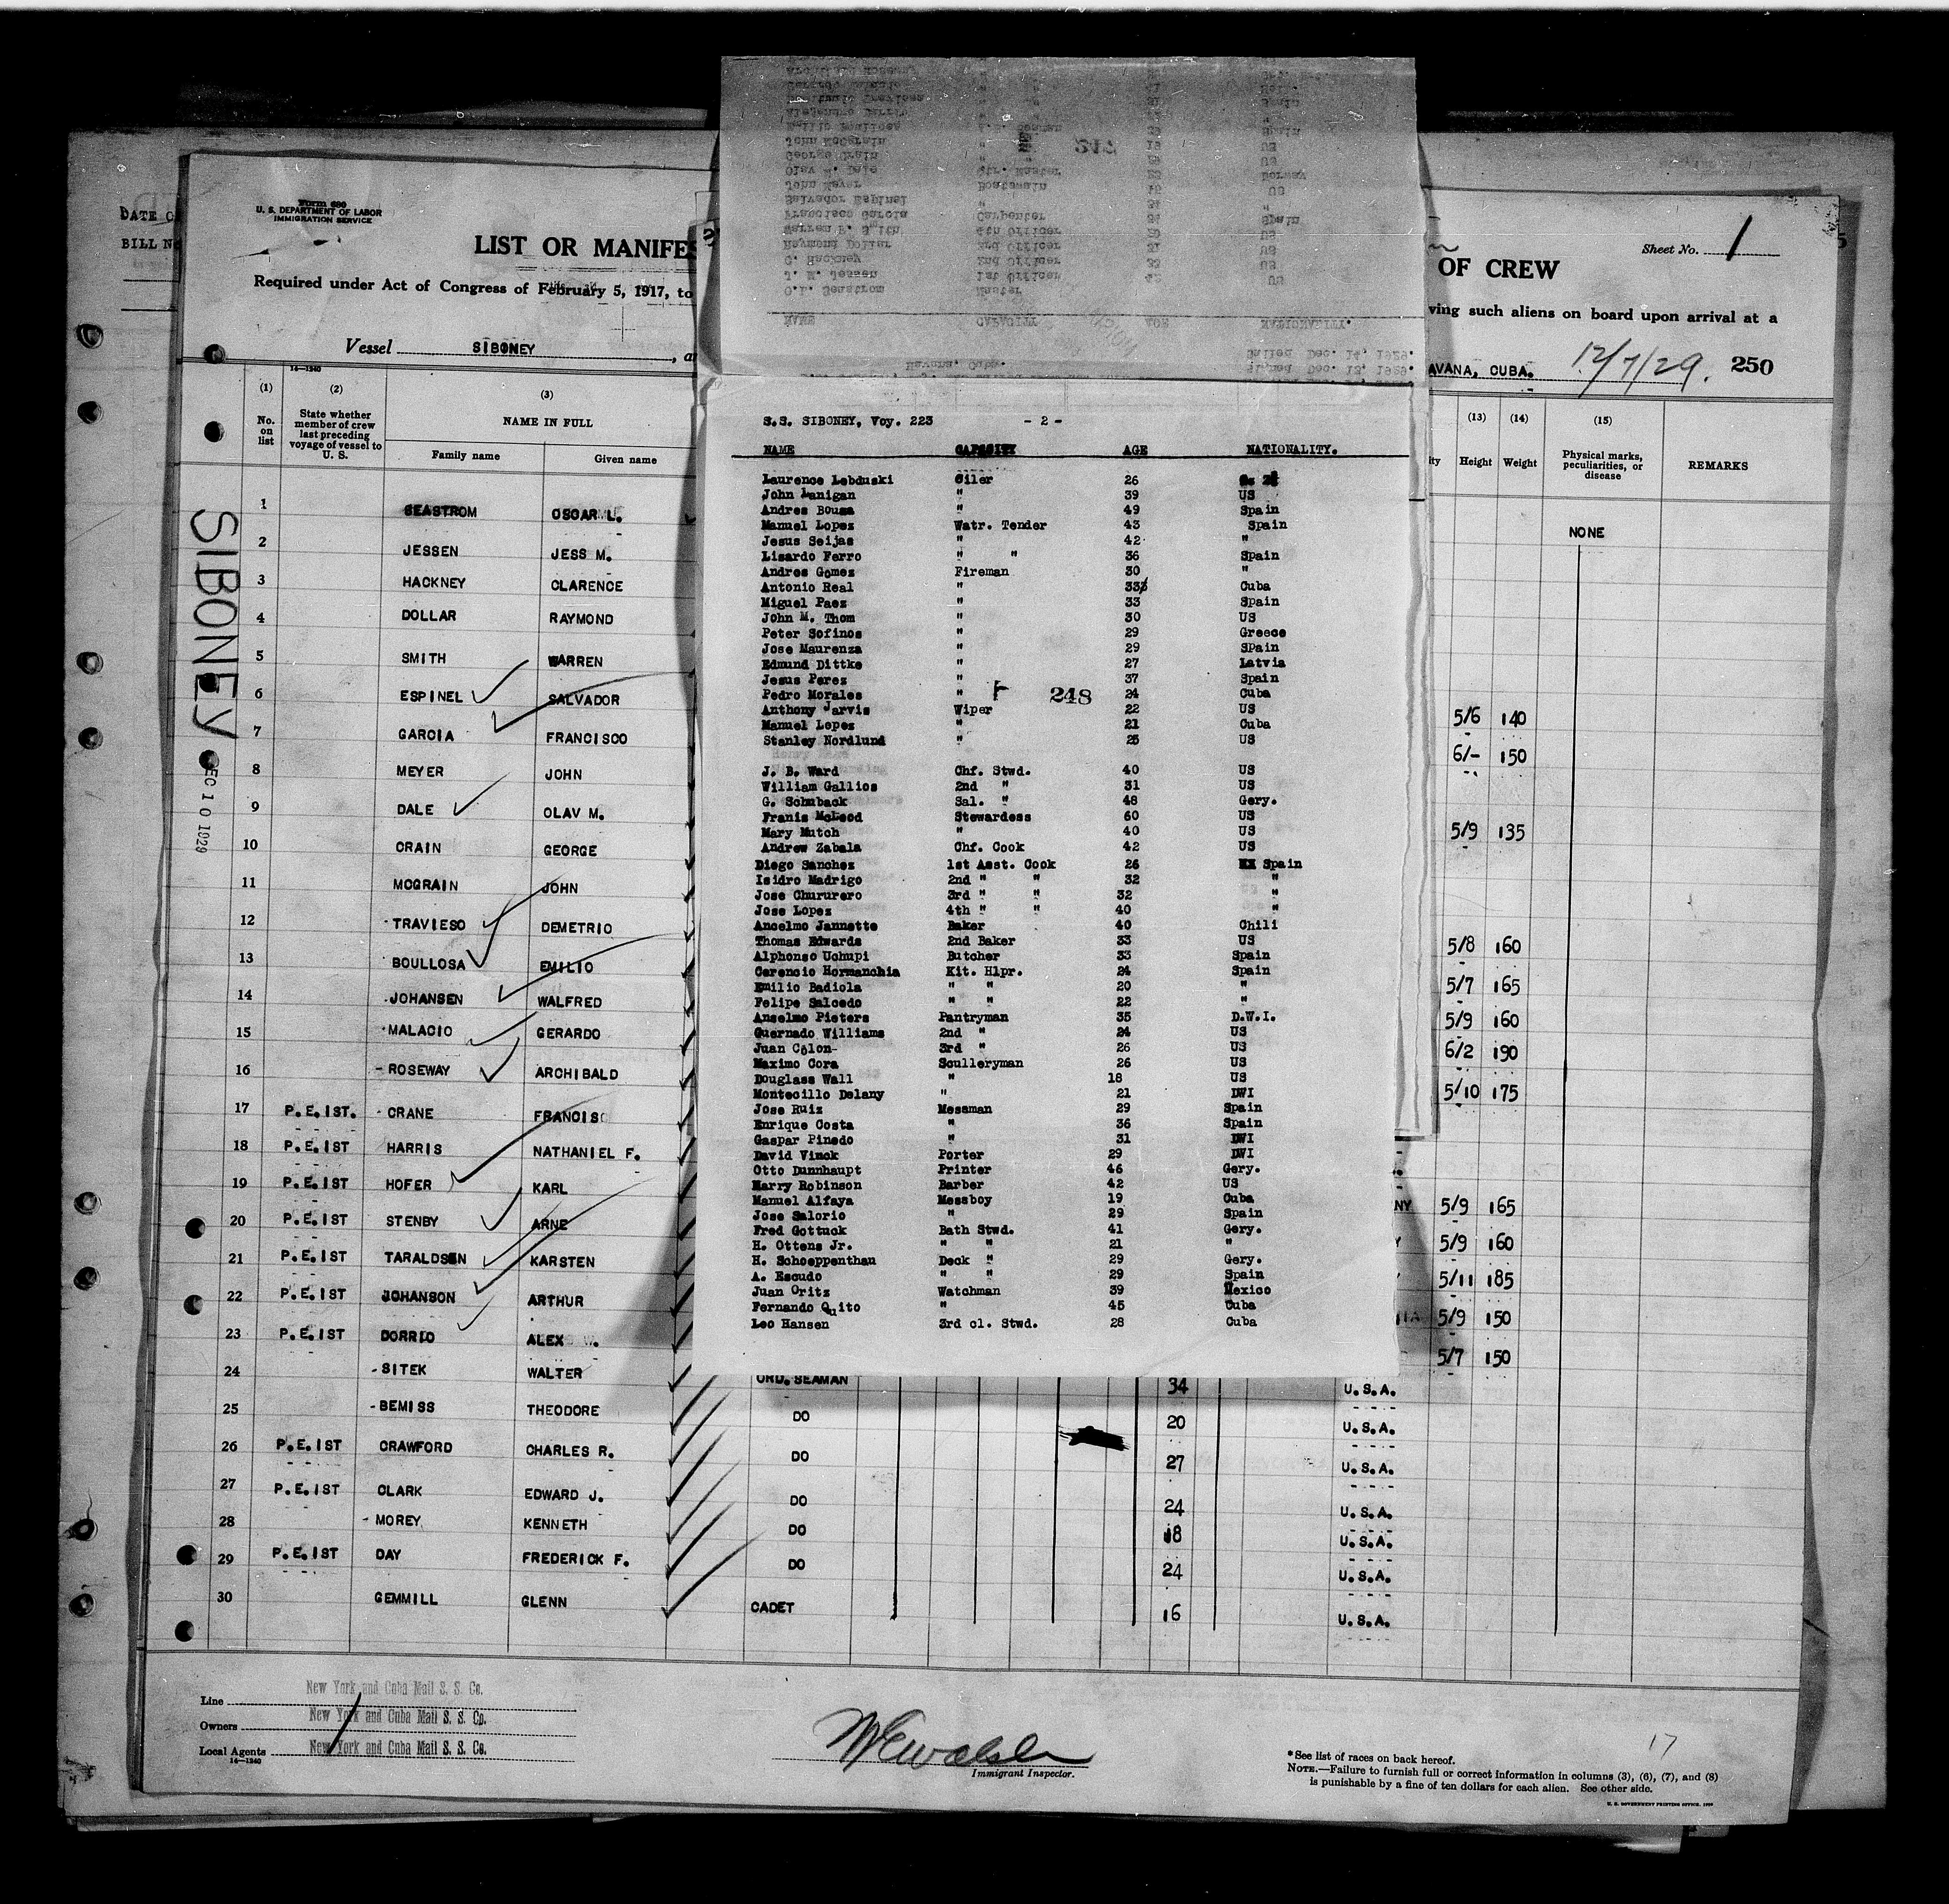 DATE O
BILL N
Form 680
U. S. DEPARTMENT OF LABOR
IMMIGRATION SERVICE
LIST OR MANIFES
OF CREW
Sheet No. 1
Required under Act of Congress of February 5, 1917, to
ving such aliens on board upon arrival at a
Vessel SIBONEY, a
AVANA, CUBA. 12/7/29. 250
14—1240
(1) (2) (3) (13) (14) (15)
No. on list
State whether member of crew last preceding voyage of vessel to U. S.
NAME IN FULL
Family name Given name
Height Weight
Physical marks, peculiarities, or disease
REMARKS
SIBONEY
EC 10 1929
1 SEASTROM OSCAR L. NONE
2 JESSEN JESS M.
3 HACKNEY CLARENCE
4 DOLLAR RAYMOND
5 SMITH WARREN
6 ESPINEL SALVADOR 5/6 140
7 GARCIA FRANCISCO 6/- 150
8 MEYER JOHN
9 DALE OLAV M. 5/9 135
10 CRAIN GEORGE
11 MCGRAIN JOHN
12 -TRAVIESO DEMETRIO 5/8 160
13 BOULLOSA EMILIO 5/7 165
14 -JOHANSEN WALFRED 5/9 160
15 -MALACIO GERARDO 6/2 190
16 -ROSEWAY ARCHIBALD 5/10 175
17 P.E.IST. -CRANE FRANCIS
18 P.E.IST HARRIS NATHANIEL F.
19 P.E.IST HOFER KARL NY 5/9 165
20 P.E.IST STENBY ARNE Y 5/9 160
21 P.E.IST TARALDSEN KARSTEN 5/11 185
22 P.E.IST JOHANSON ARTHUR 5/9 150
23 P.E.IST DORRIO ALEX 5/7 150
24 -SITEK WALTER ORD. SEAMAN 34 U.S.A.
25 -BEMISS THEODORE DO 20 U.S.A.
26 P.E.IST CRAWFORD CHARLES R. DO 27 U.S.A.
27 P.E.IST CLARK EDWARD J. DO 24 U.S.A.
28 -MOREY KENNETH DO 18 U.S.A.
29 P.E.IST DAY FREDERICK F. DO 24 U.S.A.
30 GEMMILL GLENN CADET 16 U.S.A.
S.S. SIBONEY, Voy. 223 - 2 -
NAME CAPACITY AGE NATIONALITY.
Laurence Lebduski Oiler 26
John Lanigan " 39 US
Andres Bouza " 49 Spain
Manuel Lopez Watr. Tender 43 Spain
Jesus Seijas " 42 "
Lisardo Ferro " " 36 Spain
Andres Gomez Fireman 30 "
Antonio Real " 33 Cuba
Miguel Paez " 33 Spain
John M. Thom " 30 US
Peter Sofinos " 29 Greece
Jose Maurenza " 29 SPain
Edmund Dittke " 27 Latvia
Jesus Perez " 37 Spain
Pedro Morales " 248 24 Cuba
Anthony Jarvis Wiper 22 US
Manuel Lopez " 21 Cuba
Stanley Nordlund " 25 US
J. B. Ward Chf. Stwd. 40 US
William Gallios 2nd " 31 US
G. Schuback Sal. " 48 Gery.
Franis McLeod Stewardess 60 US
Mary Mutch " 40 US
Andrew Zabala Chf. Cook 42 US
Diego Sanchez 1st Asst. Cook 26 Spain
Isidro Madrigo 2nd " " 32 "
Jose Chururero 3rd " " 32 "
Jose Lopez 4th " " 40 "
Ancelmo Jannette Baker 40 Chili
Thomas Edwards 2nd Baker 33 US
Alphonso Uchupi Butcher 33 Spain
Cerencio Hormanchia Kit. Hlpr. 24 Spain
Emilio Badiola " " 20 "
Felipe Salcedo " " 22 "
Anselmo Pieters Pantryman 35 D.W.I.
Guernado Williams 2nd " 24 US
Juan Colon- 3rd " 26 US
Maximo Cora Sculleryman 26 US
Douglass Wall " 18 US
Montecillo Delany " 21 DWI
Jose Ruiz Messman 29 Spain
Enrique Costa " 36 Spain
Gaspar Pinedo " 31 DWI
David Vinck Porter 29 DWI
Otto Dunnhaupt Printer 46 Gery.
Harry Robinson Barber 42 US
Manuel Alfaya Messboy 19 Cuba
Jose Salorio " 29 Spain
Fred Gottuck Bath Stwd. 41 Gery.
H. Ottens Jr. " " 21 "
H. Schoeppenthan Deck " 29 Gery.
A. Escudo " " 29 Spain
Juan Oritz Watchman 39 Mexico
Fernando Quito " 45 Cuba
Leo Hansen 3rd cl. Stwd. 28 Cuba
Line New York and Cuba Mail S. S. Co.
Owners New York and Cuba Mail S. S. Co.
Local Agents New York and Cuba Mail S. S. Co.
14—1240
Immigrant Inspector.
17
*See list of races on back hereof.
NOTE.—Failure to furnish full or correct information in columns (3), (6), (7), and (8)
is punishable by a fine of ten dollars for each alien. See other side.
U. S. GOVERNMENT PRINTING OFFICE, 1929